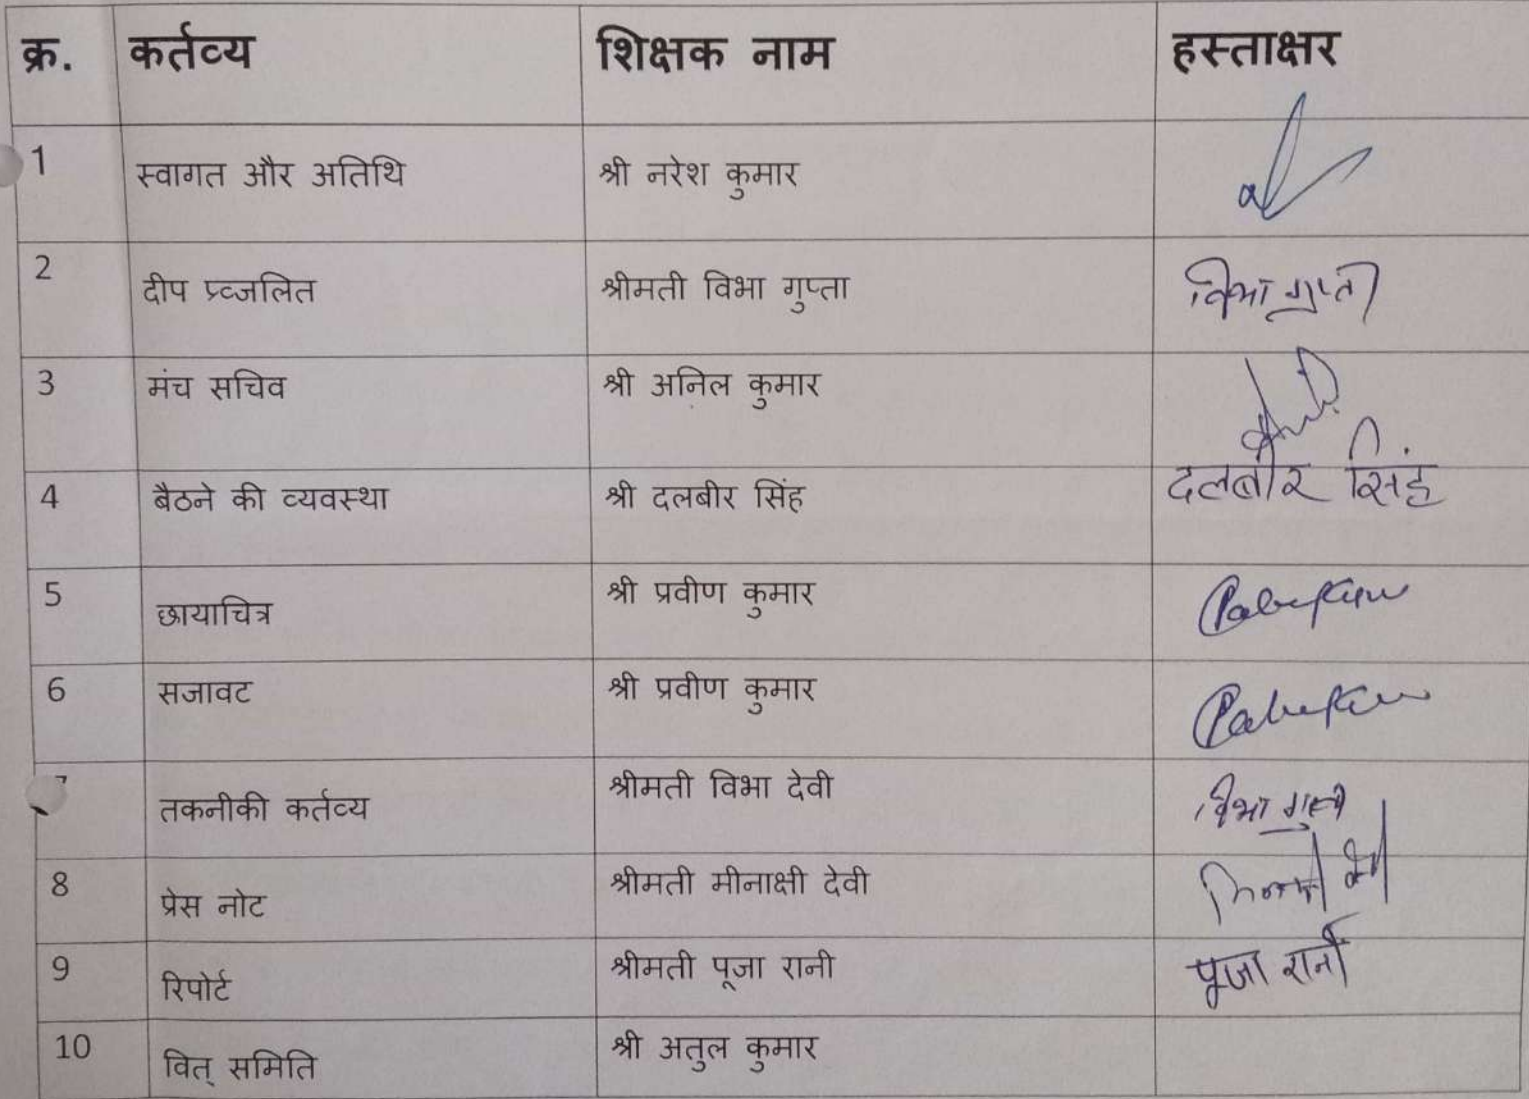 क्र. कर्तव्य शिक्षक नाम हस्ताक्षर
1 स्वागत और अतिथि श्री नरेश कुमार
2 दीप प्र्व्जलित श्रीमती विभा गुप्ता विभा गुप्ता
3 मंच सचिव श्री अनिल कुमार
4 बैठने की व्यवस्था श्री दलबीर सिंह दलबीर सिंह
5 छायाचित्र श्री प्रवीण कुमार
6 सजावट श्री प्रवीण कुमार
7 तकनीकी कर्तव्य श्रीमती विभा देवी विभा गुप्ता
8 प्रेस नोट श्रीमती मीनाक्षी देवी
9 रिपोर्ट श्रीमती पूजा रानी पूजा रानी
10 वित् समिति श्री अतुल कुमार